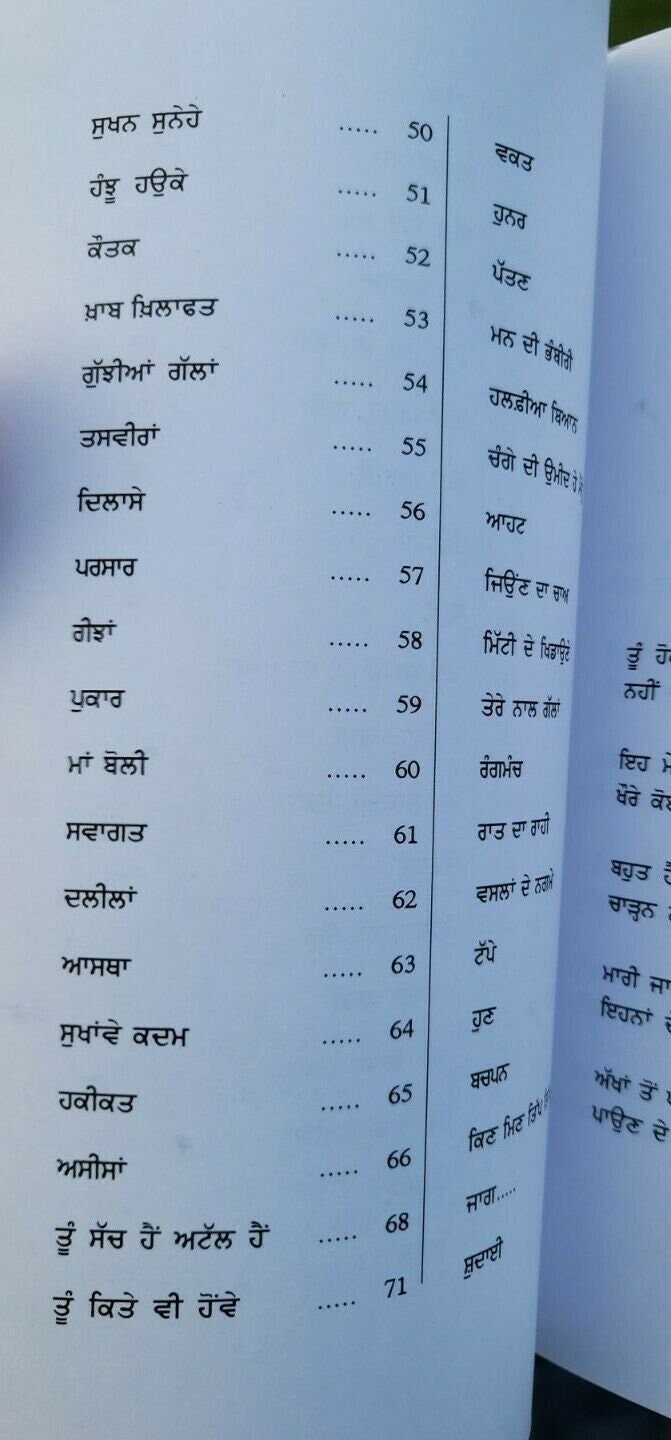 ਸੁਖਨ ਸੁਨੇਹੇ ..... 50
ਹੰਝੂ ਹਉਕੇ ..... 51
ਕੌਤਕ ..... 52
ਖ਼ਾਬ ਖ਼ਿਲਾਫਤ ..... 53
ਗੁੱਝੀਆਂ ਗੱਲਾਂ ..... 54
ਤਸਵੀਰਾਂ ..... 55
ਦਿਲਾਸੇ ..... 56
ਪਰਸਾਰ ..... 57
ਰੀਝਾਂ ..... 58
ਪੁਕਾਰ ..... 59
ਮਾਂ ਬੋਲੀ ..... 60
ਸਵਾਗਤ ..... 61
ਦਲੀਲਾਂ ..... 62
ਆਸਥਾ ..... 63
ਸੁਖਾਂਵੇ ਕਦਮ ..... 64
ਹਕੀਕਤ ..... 65
ਅਸੀਸਾਂ ..... 66
ਤੂੰ ਸੱਚ ਹੈਂ ਅਟੱਲ ਹੈਂ ..... 68
ਤੂੰ ਕਿਤੇ ਵੀ ਹੋਂਵੇ ..... 71
ਵਕਤ
ਹੁਨਰ
ਪੱਤਣ
ਮਨ ਦੀ ਭੰਬੀਰੀ
ਹਲਫ਼ੀਆ ਬਿਆਨ
ਚੰਗੇ ਦੀ ਉਮੀਦ ਹੈ
ਆਹਟ
ਜਿਉਂਣ ਦਾ ਚਾਅ
ਮਿੱਟੀ ਦੇ ਖਿਡਾਉਣੇ
ਤੇਰੇ ਨਾਲ ਗੱਲਾਂ
ਰੰਗਮੰਚ
ਰਾਤ ਦਾ ਰਾਹੀ
ਵਸਲਾਂ ਦੇ ਨਗਮੇ
ਟੱਪੇ
ਹੁਣ
ਬਚਪਨ
ਕਿਣ ਮਿਣ ਤਿੱਪ
ਜਾਗ.....
ਸ਼ੁਦਾਈ
ਤੂੰ
ਨਹੀਂ
ਇਹ
ਖੌਰੇ
ਬਹੁਤ
ਚਾੜ੍ਹਨ
ਮਾਰੀ
ਇਹਨਾਂ
ਅੱਖਾਂ ਤੋਂ
ਪਾਉਣ ਦੇ